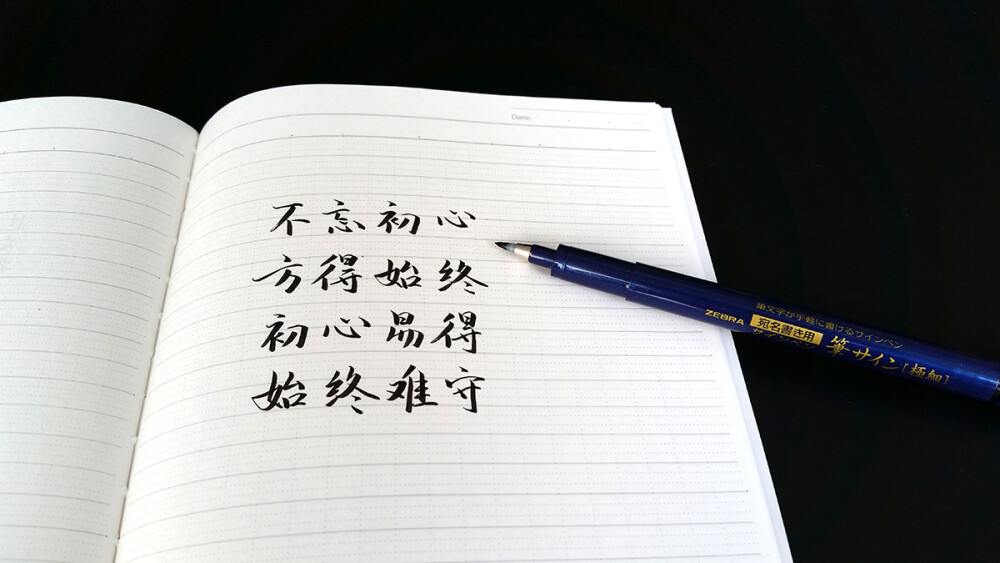 Date:
不忘初心
方得始终
初心易得
始终难守
ZEBRA
筆文字が手軽に書けるサインペン
宛名書き用
サインペン
筆サイン[極細]